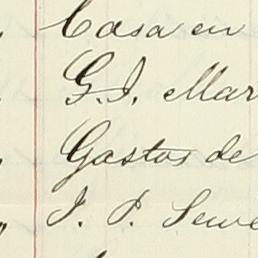 Casa en
G. I. Mar
Gastos de
I. P. Sewe